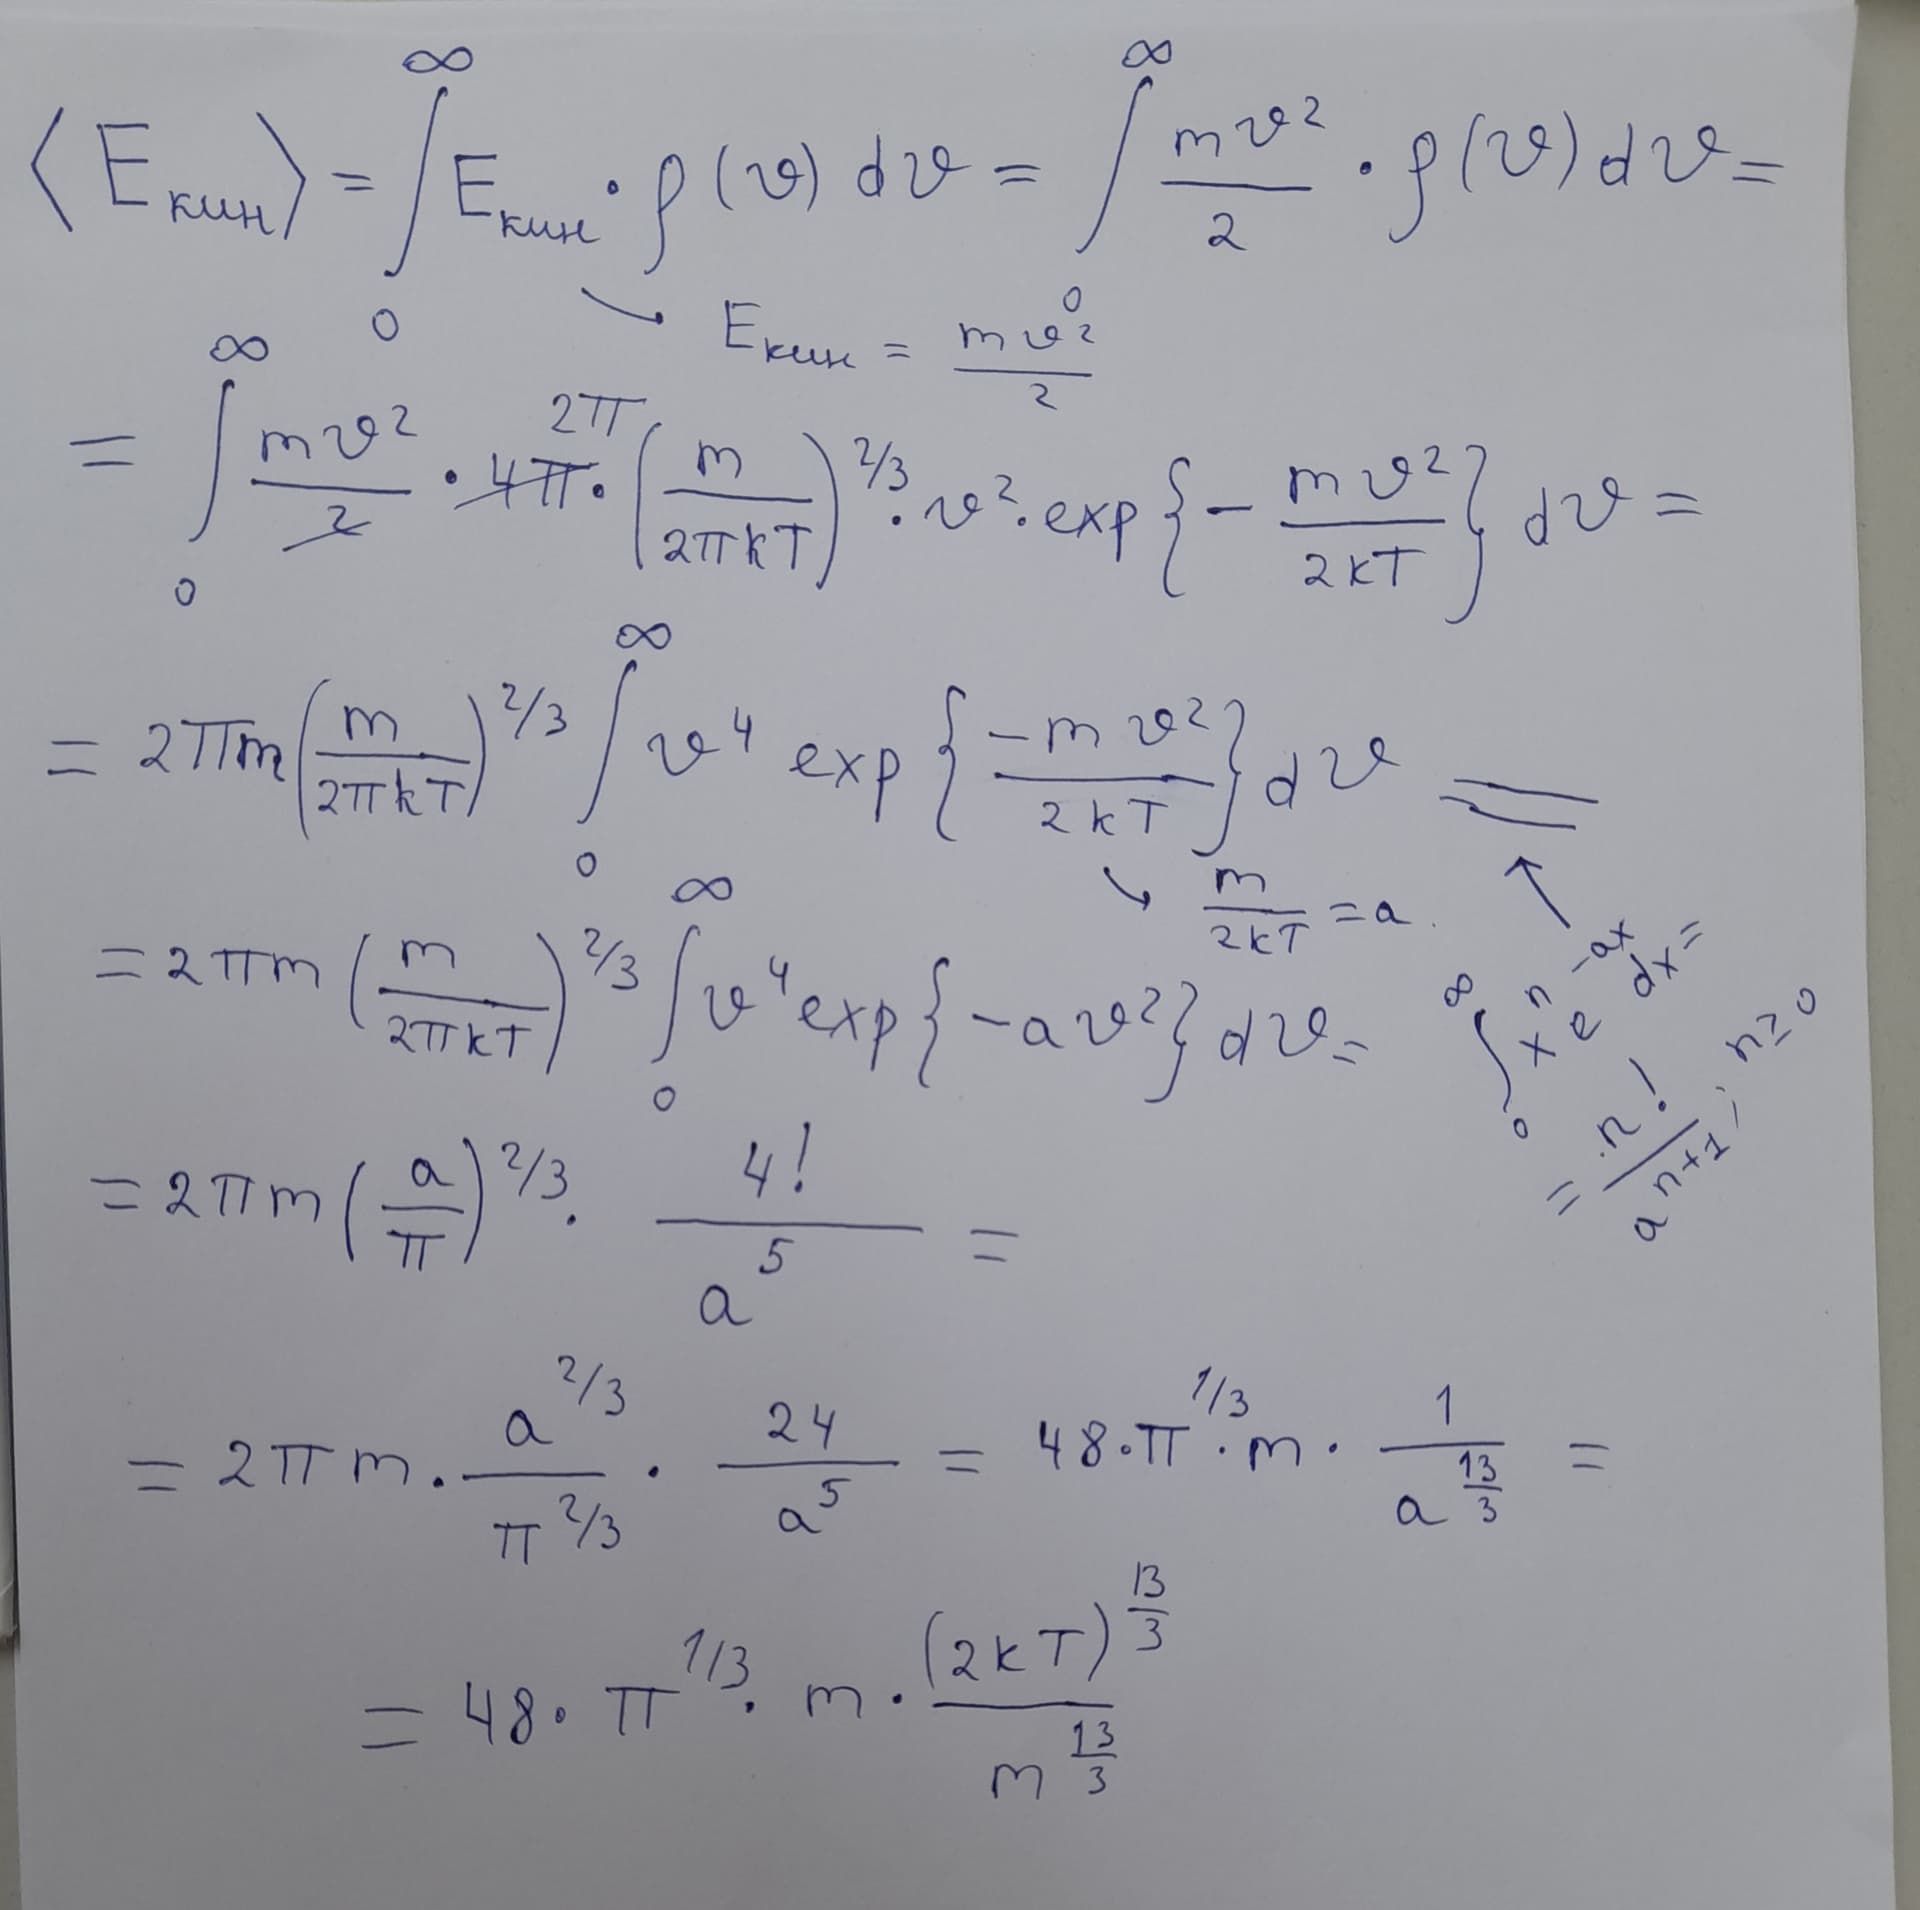 ⟨Eкин⟩ = ∫₀^∞ Eкин · ρ(v) dv = ∫₀^∞ mv²/2 · ρ(v) dv =
→ Eкин = mv²/2
= ∫₀^∞ mv²/2 · 4π · 2π (m/2πkT)^2/3 · v² · exp{- mv²/2kT} dv =
= 2πm (m/2πkT)^2/3 ∫₀^∞ v⁴ exp{-mv²/2kT} dv =
→ m/2kT = a.
= 2πm (m/2πkT)^2/3 ∫₀^∞ v⁴ exp{-av²} dv =
∫₀^∞ xⁿ e^-ax dx =
= n!/a^n+1; n≥0
= 2πm (a/π)^2/3 · 4!/a⁵ =
= 2πm · a^2/3/π^2/3 · 24/a⁵ = 48 · π^1/3 · m · 1/a^13/3 =
= 48 · π^1/3 · m · (2kT)^13/3/m^13/3